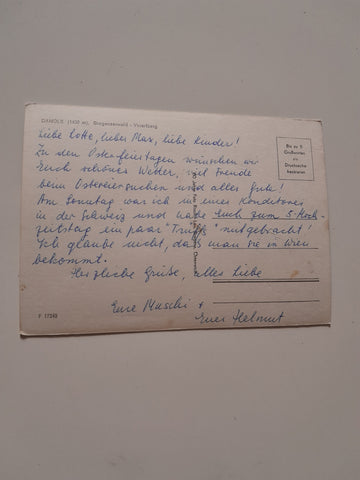 DAMÜLS (1430 m), Bregenzerwald - Vorarlberg
Liebe Lotte, lieber Max, liebe Kinder!
Zu den Osterfeiertagen wünschen wir
Euch schönes Wetter, viel Freude
beim Ostereiersuchen und alles Gute!
Am Sonntag war ich in einer Konditorei
in der Schweiz und habe Euch zum 5. Hoch-
zeitstag ein paar "Truffe" mitgebracht!
Ich glaube nicht, daß man sie in Wien
bekommt.
Herzliche Grüße, alles Liebe
Eure Muschi +
Euer Helmut
Bis zu 5
Grußworten
als
Drucksache
freimachen
F 17240